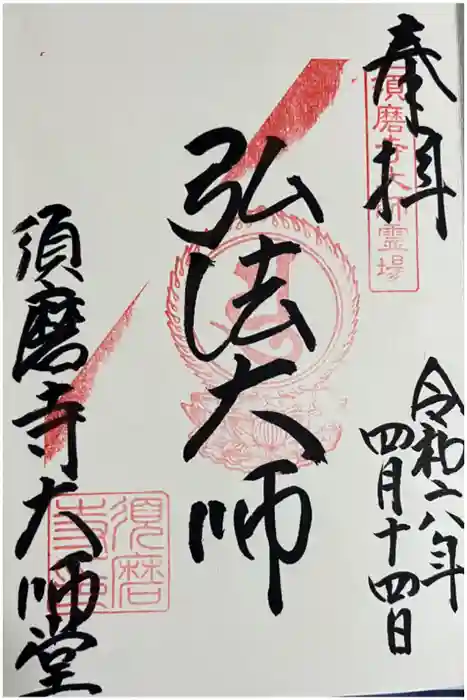 奉拝
須磨寺大師霊場
令和六年
四月十四日
弘法大師
須磨寺大師堂
須磨